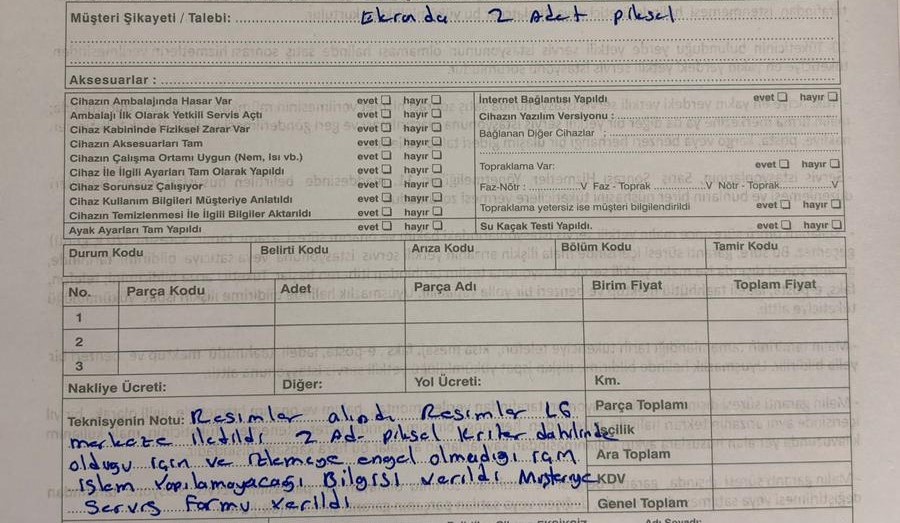 Müşteri Şikayeti / Talebi: Ekranda 2 Adet piksel
Aksesuarlar :
Cihazın Ambalajında Hasar Var evet hayır
Ambalajı İlk Olarak Yetkili Servis Açtı evet hayır
Cihaz Kabininde Fiziksel Zarar Var evet hayır
Cihazın Aksesuarları Tam evet hayır
Cihazın Çalışma Ortamı Uygun (Nem, Isı vb.) evet hayır
Cihaz İle İlgili Ayarları Tam Olarak Yapıldı evet hayır
Cihaz Sorunsuz Çalışıyor evet hayır
Cihaz Kullanım Bilgileri Müşteriye Anlatıldı evet hayır
Cihazın Temizlenmesi İle İlgili Bilgiler Aktarıldı evet hayır
Ayak Ayarları Tam Yapıldı evet hayır
İnternet Bağlantısı Yapıldı evet hayır
Cihazın Yazılım Versiyonu :
Bağlanan Diğer Cihazlar :
Topraklama Var: evet hayır
Faz-Nötr : V Faz - Toprak V Nötr - Toprak V
Topraklama yetersiz ise müşteri bilgilendirildi evet hayır
Su Kaçak Testi Yapıldı. evet hayır
Durum Kodu Belirti Kodu Arıza Kodu Bölüm Kodu Tamir Kodu
No. Parça Kodu Adet Parça Adı Birim Fiyat Toplam Fiyat
1
2
3
Nakliye Ücreti: Diğer: Yol Ücreti: Km.
Teknisyenin Notu: Resimler alındı Resimler LG
merkeze iletildi 2 Ad- piksel kriter dahilinde
olduğu için ve izlemeye engel olmadığı için
işlem yapılamayacağı Bilgisi verildi Müşteriye
Servis formu verildi
Parça Toplamı
İşçilik
Ara Toplam
KDV
Genel Toplam